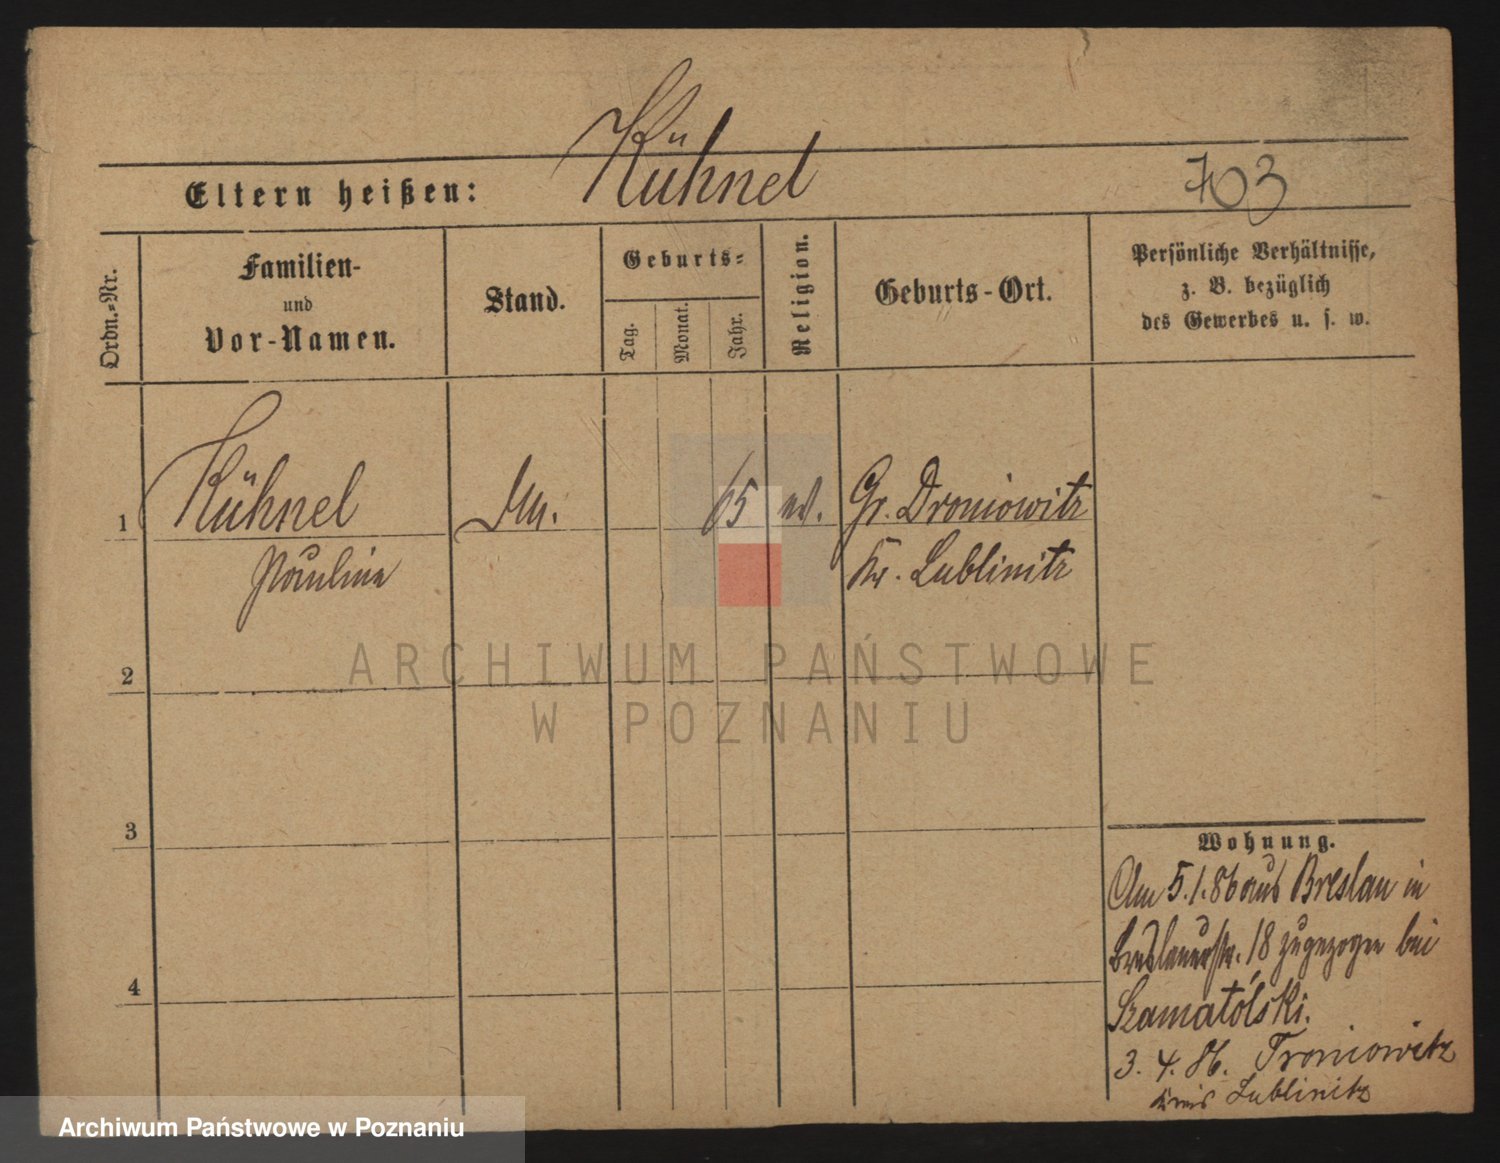 Kühnel
Eltern heißen:
703
Ordn.-Nr.
Familien-
und
Vor-Namen.
Stand.
Geburts-
Tag.
Monat.
Jahr.
Religion.
Geburts-Ort.
Persönliche Verhältnisse,
z. B. bezüglich
des Gewerbes u. s. w.
1
Kühnel
65
Gr. Droniowitz
Pauline
Kr. Lublinitz
ARCHIWUM PAŃSTWOWE
W POZNANIU
2
3
4
Wohnung.
Am 5.1.86 aus Breslau in
Breslauerstr. 18 zugezogen bei
Szamatólski.
3. 4. 86. Troniowitz
Kreis Lublinitz
Archiwum Państwowe w Poznaniu